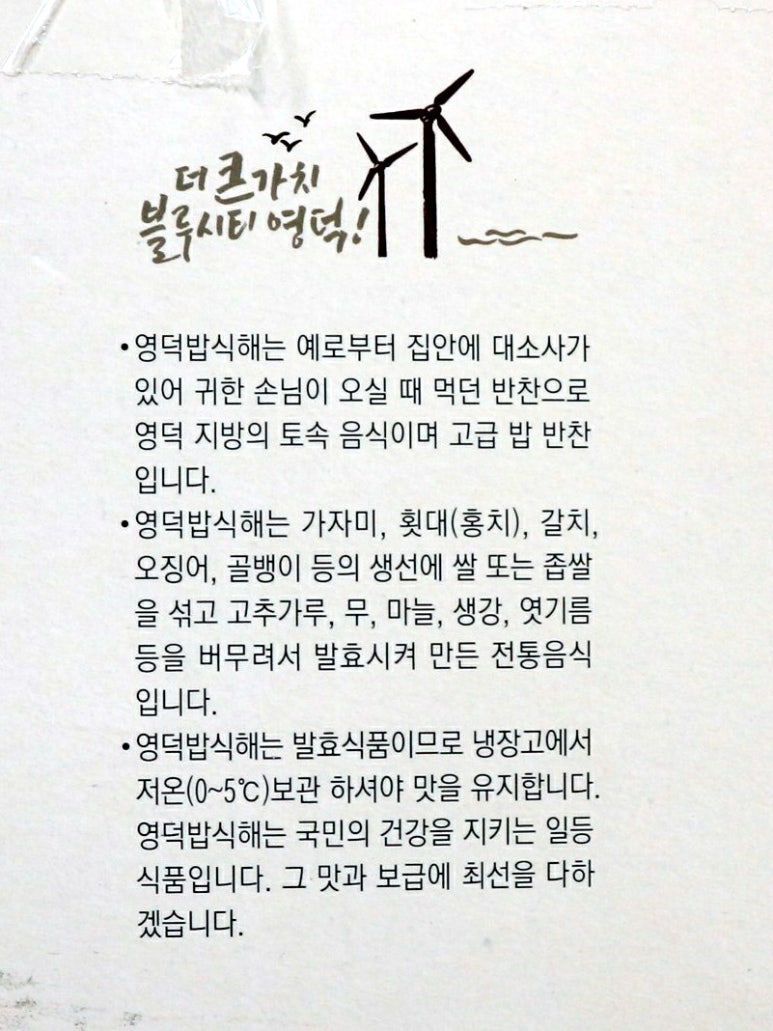 더 큰 가치
블루시티 영덕!
•영덕밥식해는 예로부터 집안에 대소사가
있어 귀한 손님이 오실 때 먹던 반찬으로
영덕 지방의 토속 음식이며 고급 밥 반찬
입니다.
•영덕밥식해는 가자미, 횟대(홍치), 갈치,
오징어, 골뱅이 등의 생선에 쌀 또는 좁쌀
을 섞고 고추가루, 무, 마늘, 생강, 엿기름
등을 버무려서 발효시켜 만든 전통음식
입니다.
•영덕밥식해는 발효식품이므로 냉장고에서
저온(0~5℃)보관 하셔야 맛을 유지합니다.
영덕밥식해는 국민의 건강을 지키는 일등
식품입니다. 그 맛과 보급에 최선을 다하
겠습니다.